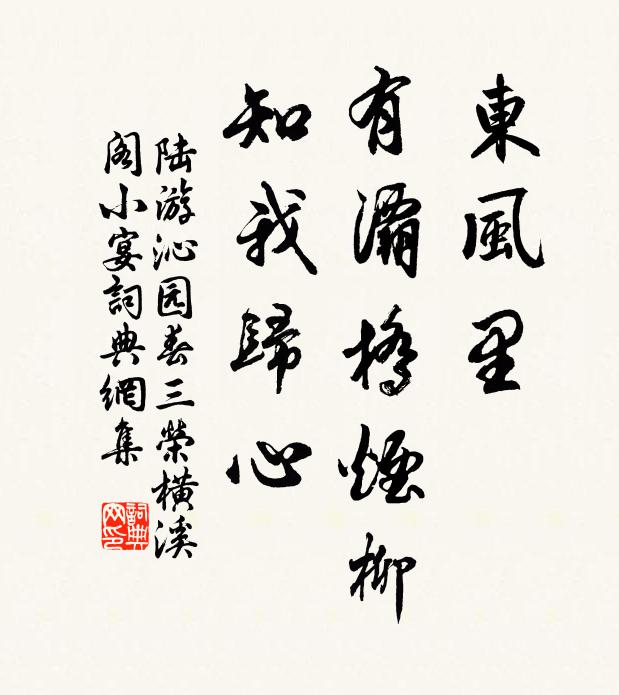 東風里
有灞橋煙柳
知我歸心
陆游沁园春三榮横溪
阁小宴詞典網集
詞典
网印